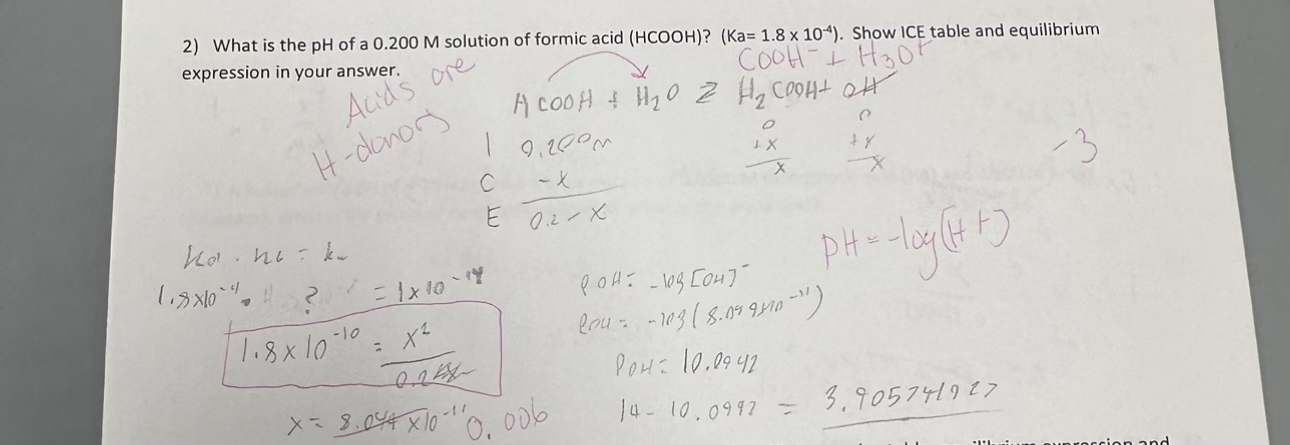 2) What is the pH of a 0.200 M solution of formic acid (HCOOH)? (Ka= 1.8 x 10⁻⁴). Show ICE table and equilibrium
expression in your answer.
Acids are
H-donors
COOH⁻ + H3O+
HCOOH + H2O ⇌ H2COOH+ OH
I 0.200m 0 0
C -x +x +x
E 0.2-x x x
-3
pH = -log(H+)
Ka · = kw
1.8x10⁻⁴ · ? = 1x10⁻¹⁴
1.8x10⁻¹⁰ = x²
x = x10⁻¹¹ 0.006
pOH = -log[OH]⁻
pOH = -log(
pOH = 10.0942
14 - = 3.905741927